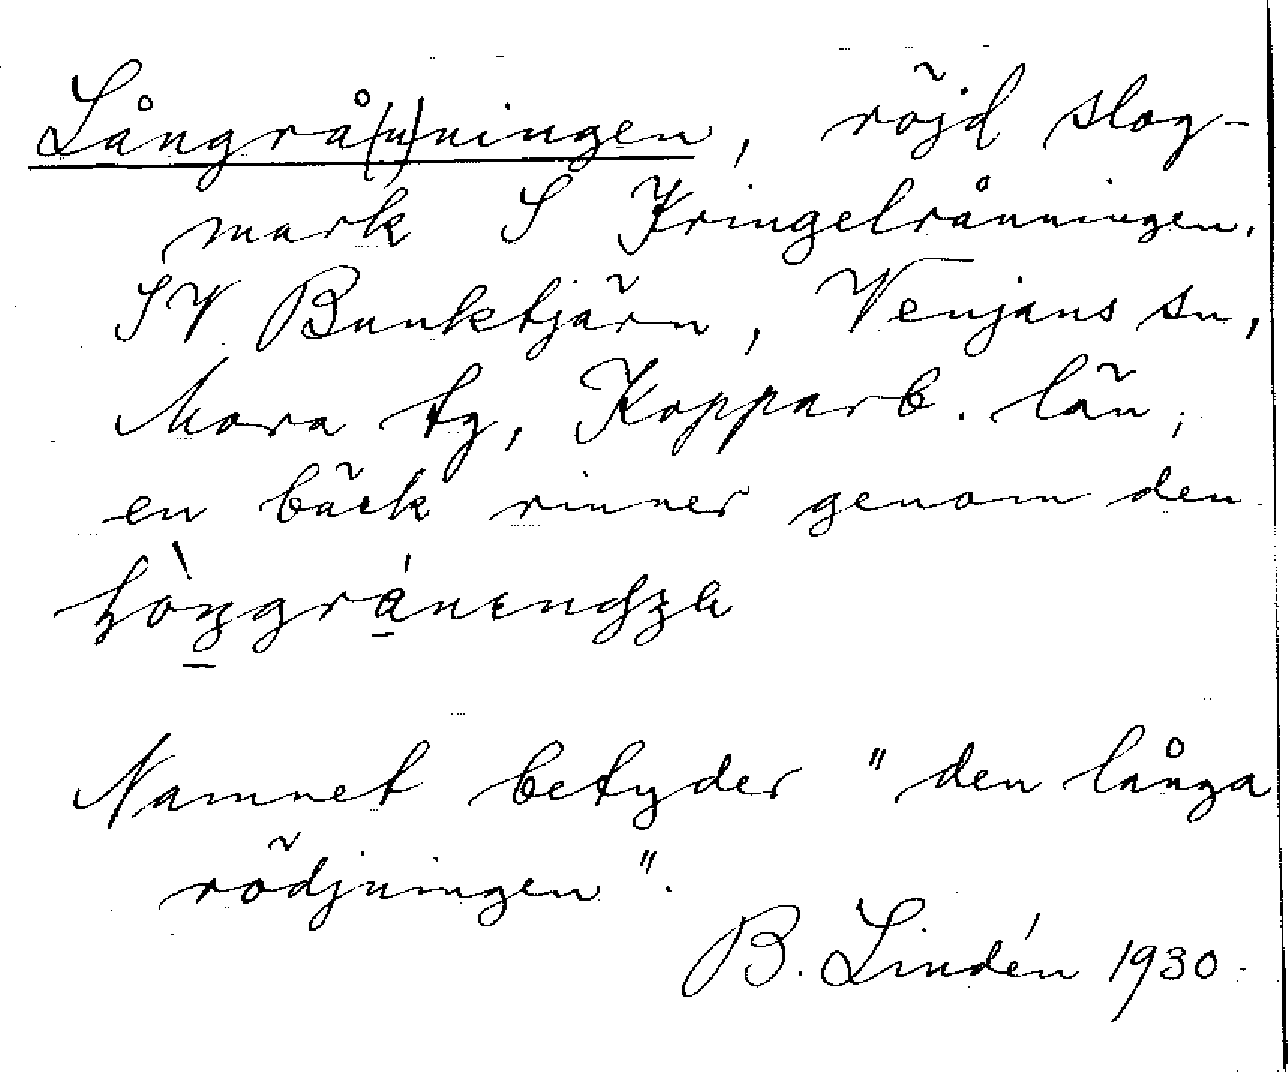 Långrå(n)ningen, röjd slog-
mark S Kringelrånningen.
SV Bunktjärn, Venjans sn,
Mora tg, Kopparb. län,
en bäck rinner genom den
Namnet betyder "den långa
rödjningen".
B. Lindén 1930.